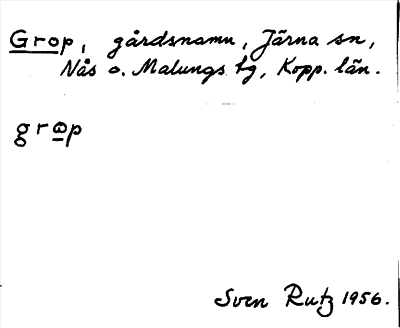 Grop, gårdsnamn, Järna sn,
Nås o. Malungs tg, Kopp. län.
grop
Sven Rutz 1956.